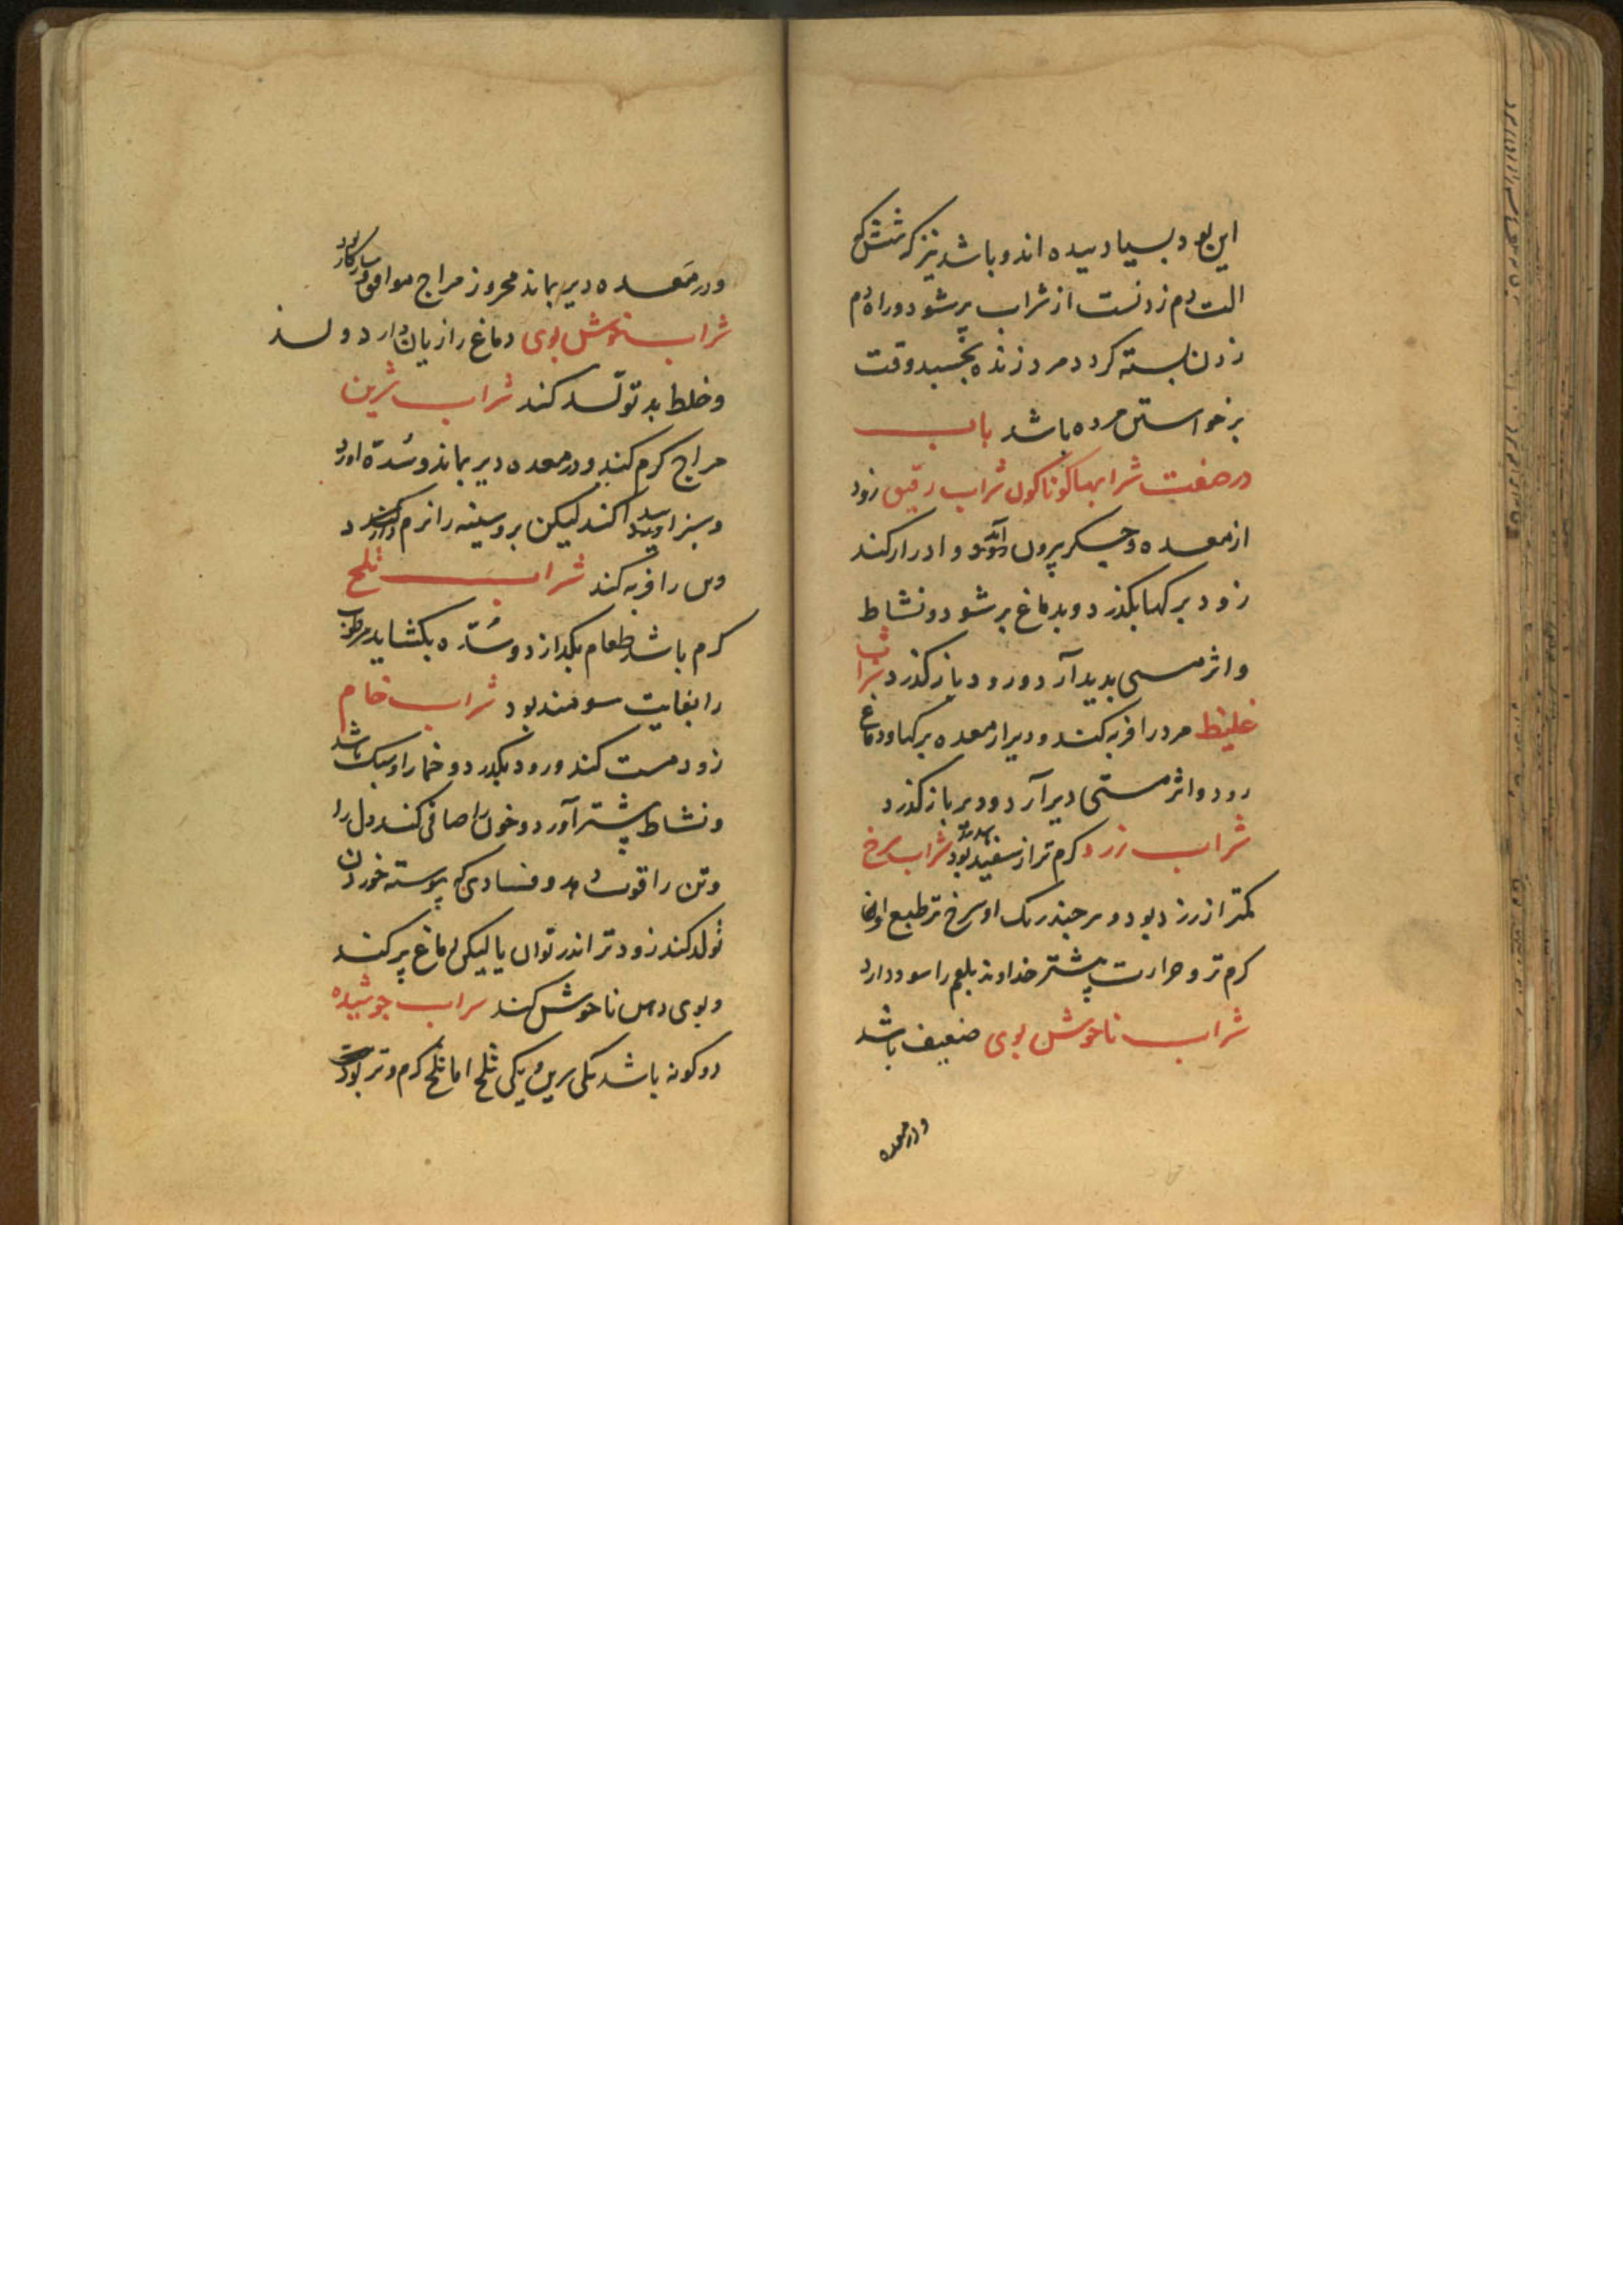 این بود بسیار دیده اند و باشد نیز که شش که
الت دم زدنست از شراب پر شود و راه دم
زدن بسته کردد مرد زنده بخسبد وقت
برخواستن مرده باشد باب
در صفت شرابهاء کوناکون شراب رقیق زود
از معده و جیکر بیرون آید و ادرار کند
زود برکها بکذرد و بدماغ بر شود و نشاط
و اثر مستی بدید آرد و زود باز کذرد شراب
غلیظ مرد را فربه کند و دیر از معده برکها و دماغ
رود و اثر مستی دیر آرد و دیر باز کذرد
شراب زرد کرم تر از سفید بود شراب سرخ
کمتر از زرد بود و هر چند رنک او سرخ تر طبع او
کرم تر و حرارت بیشتر خداوند بلغم را سود دارد
شراب ناخوش بوی ضعیف باشد
و در معده
و در معده دیر بماند محرور مزاج موافق و سازکار بود
شراب خوش بوی دماغ را زیان دارد و
و خلط بد تولّد کند شراب شرین
مزاج کرم کند و در معده دیر بماند و سُدّه اورد
و سبز را کند لیکن بر و سینه را نرم کند
و تن را فربه کند شراب تلخ
کرم باشد طعام بکدازد و سُدّه بکشاید مرطوب
را بغایت سومند بود شراب خام
زود مست کند و زود بکذرد و خمار او سبک باشد
و نشاط بیشتر آورد و خون را صافی کند و دل را
و تن را قوت دهد و فسادی که پیوسته خوردن
تولد کند زودتر اندر توان یا لیکن دماغ پر کند
و بوی دهن ناخوش کند شراب جوشیده
دو کونه باشد یکی شرین و یکی تلخ اما تلخ کرم و تر بود